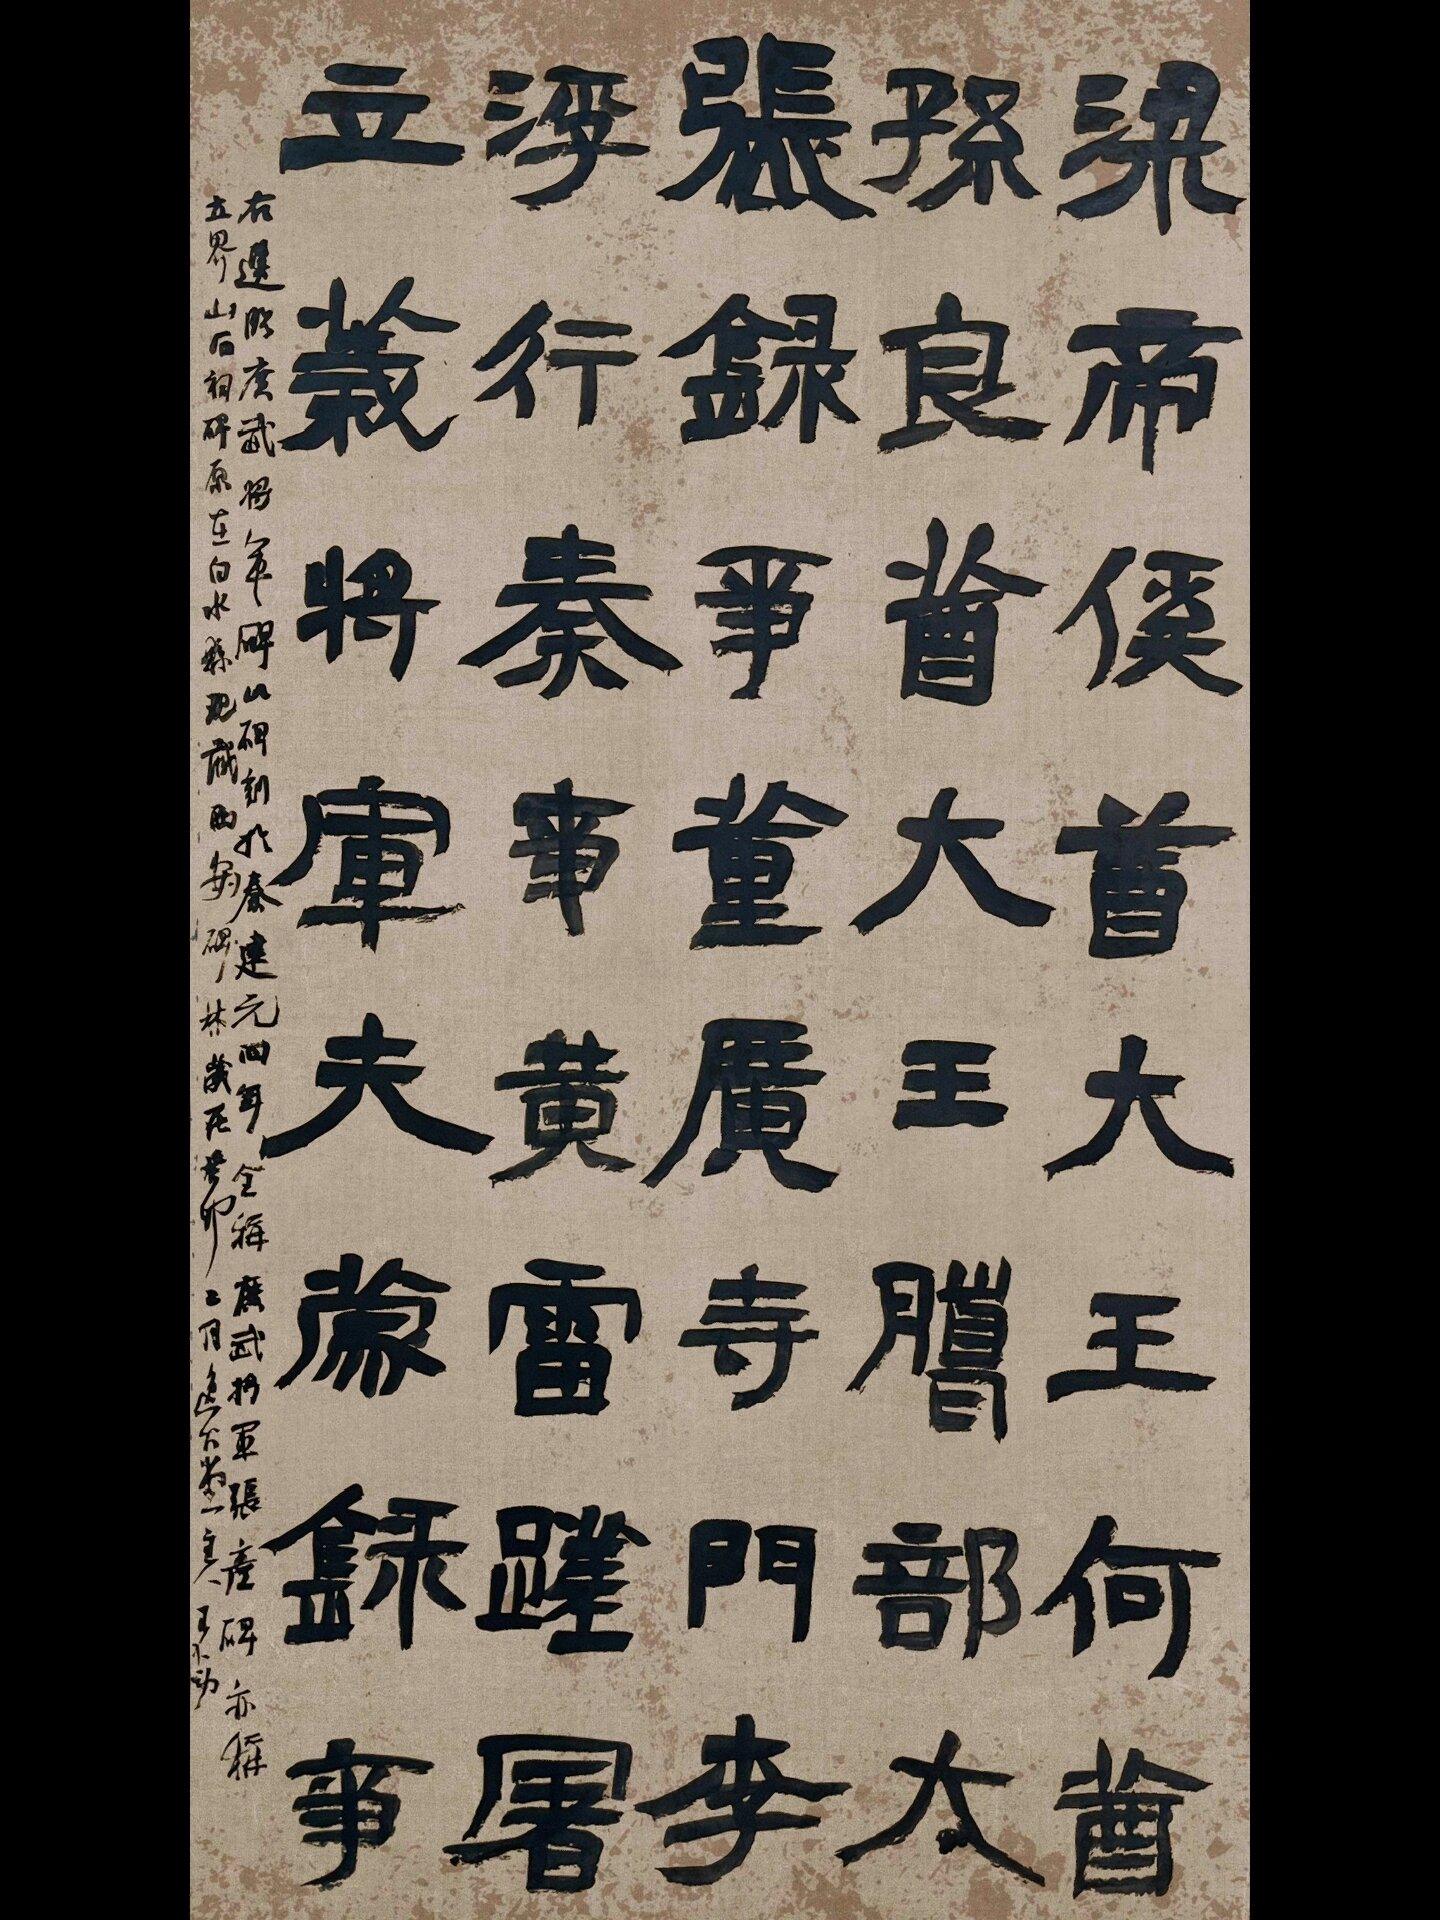 梁帝傒酋大王何酋
孫良酋大王腾部大
張録事董廣寺門李
浮行秦事黄雷蹉屠
立義將軍夫蒙録事
右選臨廣武將軍碑此碑刻於秦建元四年全稱廣武將軍張產碑亦稱
立界山石祠碑原在白水縣現藏西安碑林歲在癸卯二月